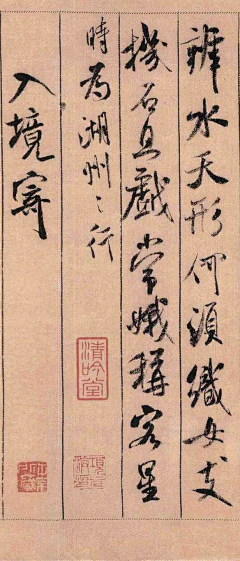 辨水天形何須織女支
機石且戲常娥稱客星
時為湖州之行
清吟堂
入境寄